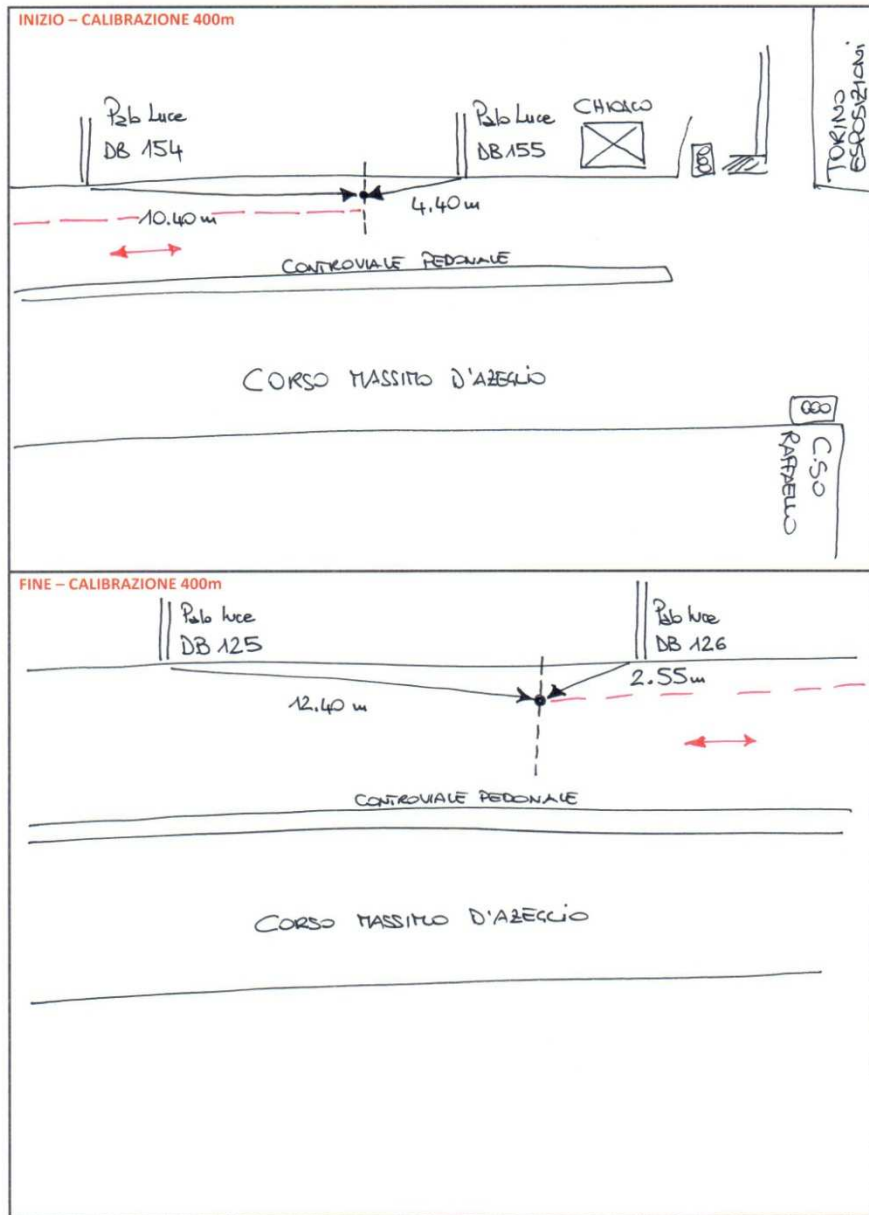 INIZIO – CALIBRAZIONE 400m
Palo Luce
DB 154
Palo Luce
DB 155
CHIOSCO
TORINO
ESPOSIZIONI
10.40 m
4.40 m
CONTROVIALE PEDONALE
CORSO MASSIMO D'AZEGLIO
C.SO
RAFFAELLO
FINE – CALIBRAZIONE 400m
Palo luce
DB 125
Palo luce
DB 126
12.40 m
2.55 m
CONTROVIALE PEDONALE
CORSO MASSIMO D'AZEGLIO